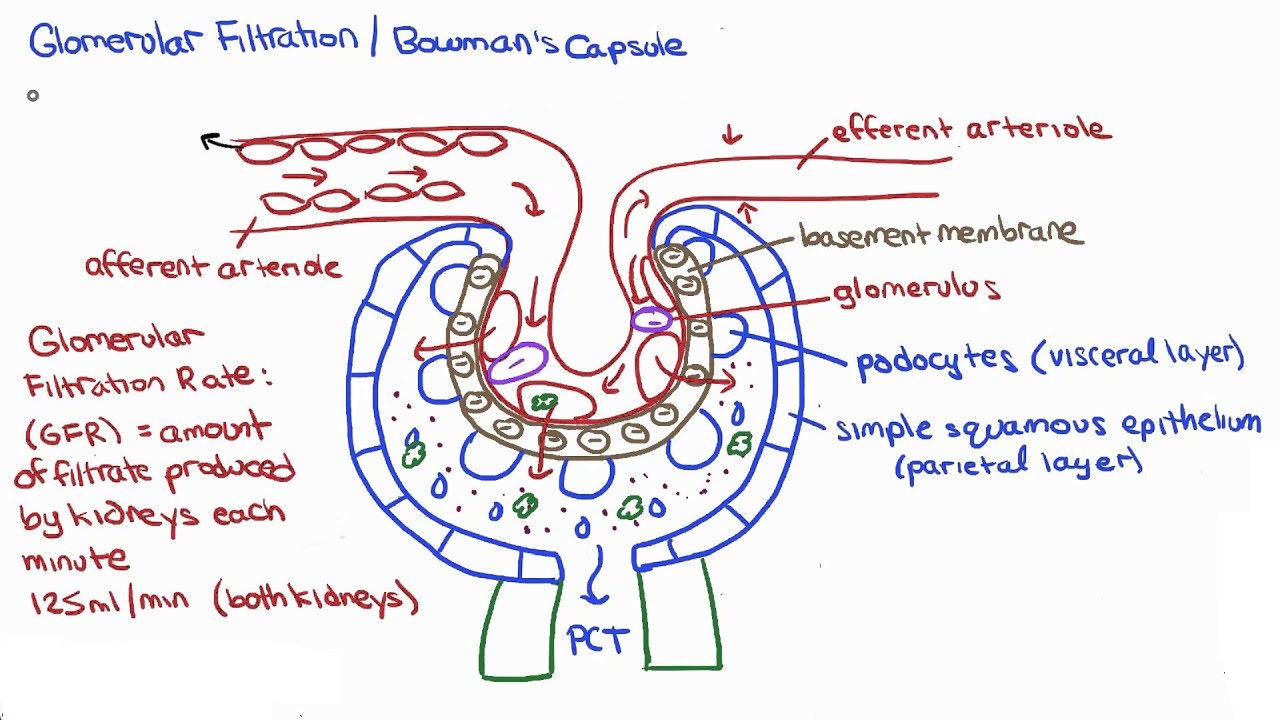 Glomerular Filtration / Bowman's Capsule
efferent arteriole
basement membrane
afferent arteriole
glomerulus
podocytes (visceral layer)
simple squamous epithelium
(parietal layer)
Glomerular
Filtration Rate:
(GFR) = amount
of filtrate produced
by kidneys each
minute
125ml/min (both kidneys)
PCT